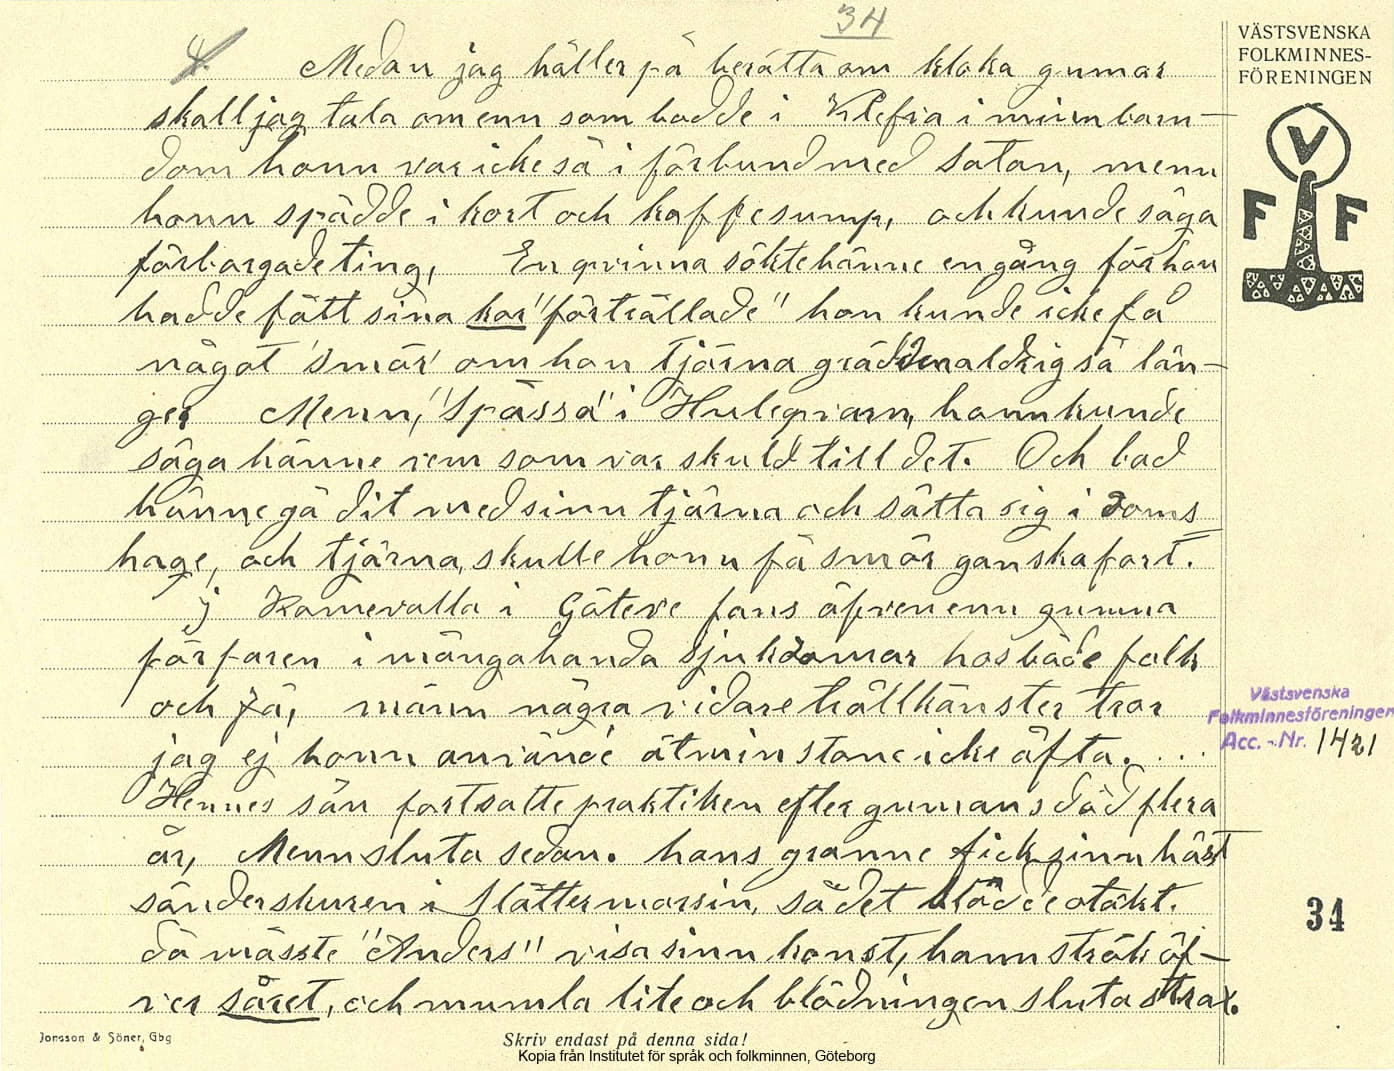 34
VÄSTSVENSKA
FOLKMINNES-
FÖRENINGEN
V
F F
4. Medan jag håller på berätta om kloka gumar
skall jag tala om enn som bodde i Klefva i minn barn-
dom honn var icke så i förbund med Satan, menn
honn spådde i kort och kaffesump, och kunde säga
förborgade ting, En qvinna sökte hänne en gång för hon
hadde fått sina kor "förtrållade" hon kunde icke få
något 'smör' om hon tjärna grädden aldrig så län-
ger Menn, "Spåssa" i Huleqvarn, honn kunde
säga hänne vem som var skuld till det. Och bad
hänne gå dit med sinn tjärna och sätta sig i doms
hage, och tjärna, skulle honn få smör ganska fort.
j Ramevalla i Göteve fans äfven enn gumma
förfaren i mångahanda sjukdomar hos både folk
och fä, männ några vidare trållkånster tror
jag ej honn använde åtminstone icke åfta. . .
Hennes sån fortsatte praktiken efter gumans död flera
år, Menn sluta sedan. hans granne fick sinn häst
sönderskuren i slåttermarsin, sådet blödde otäkt.
då måsste "Anders" visa sinn konst, hann strök öf-
ver såret, och mumla lite och blödningen sluta strax.
Västsvenska
Folkminnesföreningen
Acc. - Nr. 1421
34
Jonsson & Söner, Gbg
Skriv endast på denna sida!
Kopia från Institutet för språk och folkminnen, Göteborg